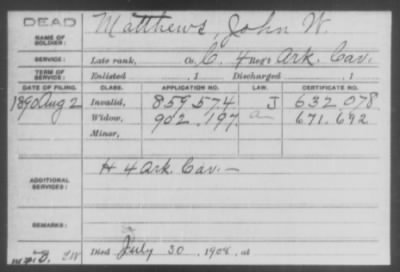 DEAD
NAME OF SOLDIER: Matthews, John W.
SERVICE: Late rank, Co. C. 4 Reg't Ark. Cav.
TERM OF SERVICE: Enlisted , 1 Discharged , 1
DATE OF FILING. CLASS. APPLICATION NO. LAW. CERTIFICATE NO.
1890 Aug 2 Invalid, 859.574 J 632.078.
Widow, 902.197 a 671.692
Minor,
ADDITIONAL SERVICES: H 4 Ark Cav. —
REMARKS:
Died July 30, 1908, at